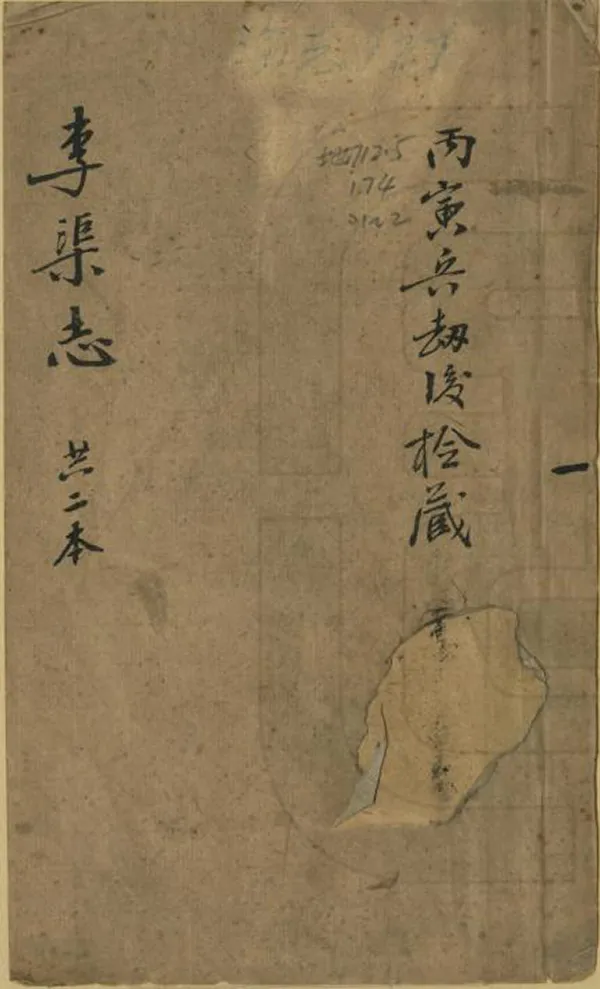 丙寅兵劫後檢藏
一
李渠志 共二本
地712.5
174